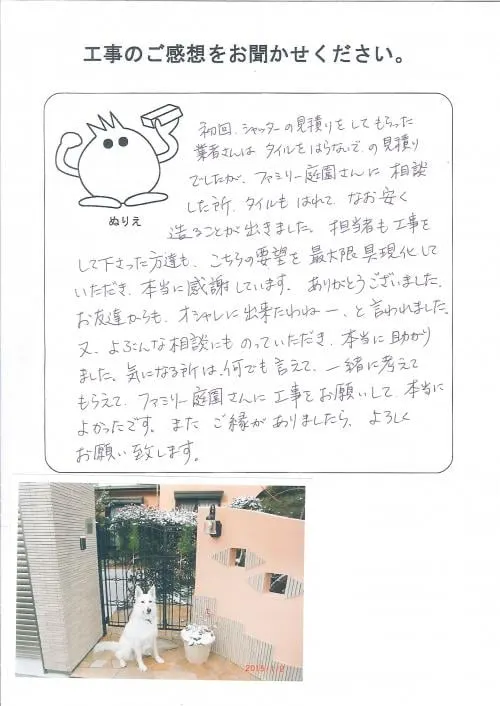 工事のご感想をお聞かせください。
ぬりえ
初回、シャッターの見積りをしてもらった
業者さんは タイルをはらないでの見積り
でしたが、ファミリー庭園さんに 相談
した所、タイルも はれて、なお安く
造ることが出きました。担当者も工事を
して下さった方達も、こちらの要望を 最大限 具現化して
いただき、本当に感謝しています。 ありがとうございました。
お友達からも、オシャレに出来たわねー、と言われました。
又、よろこんな相談にも のっていただき、本当に助かり
ました。気になる所は、何でも言えて、一緒に考えて
もらえて、ファミリー庭園さんに 工事をお願いして、本当に
よかったです。また ご縁がありましたら、よろしく
お願い致します。
2015/1/2